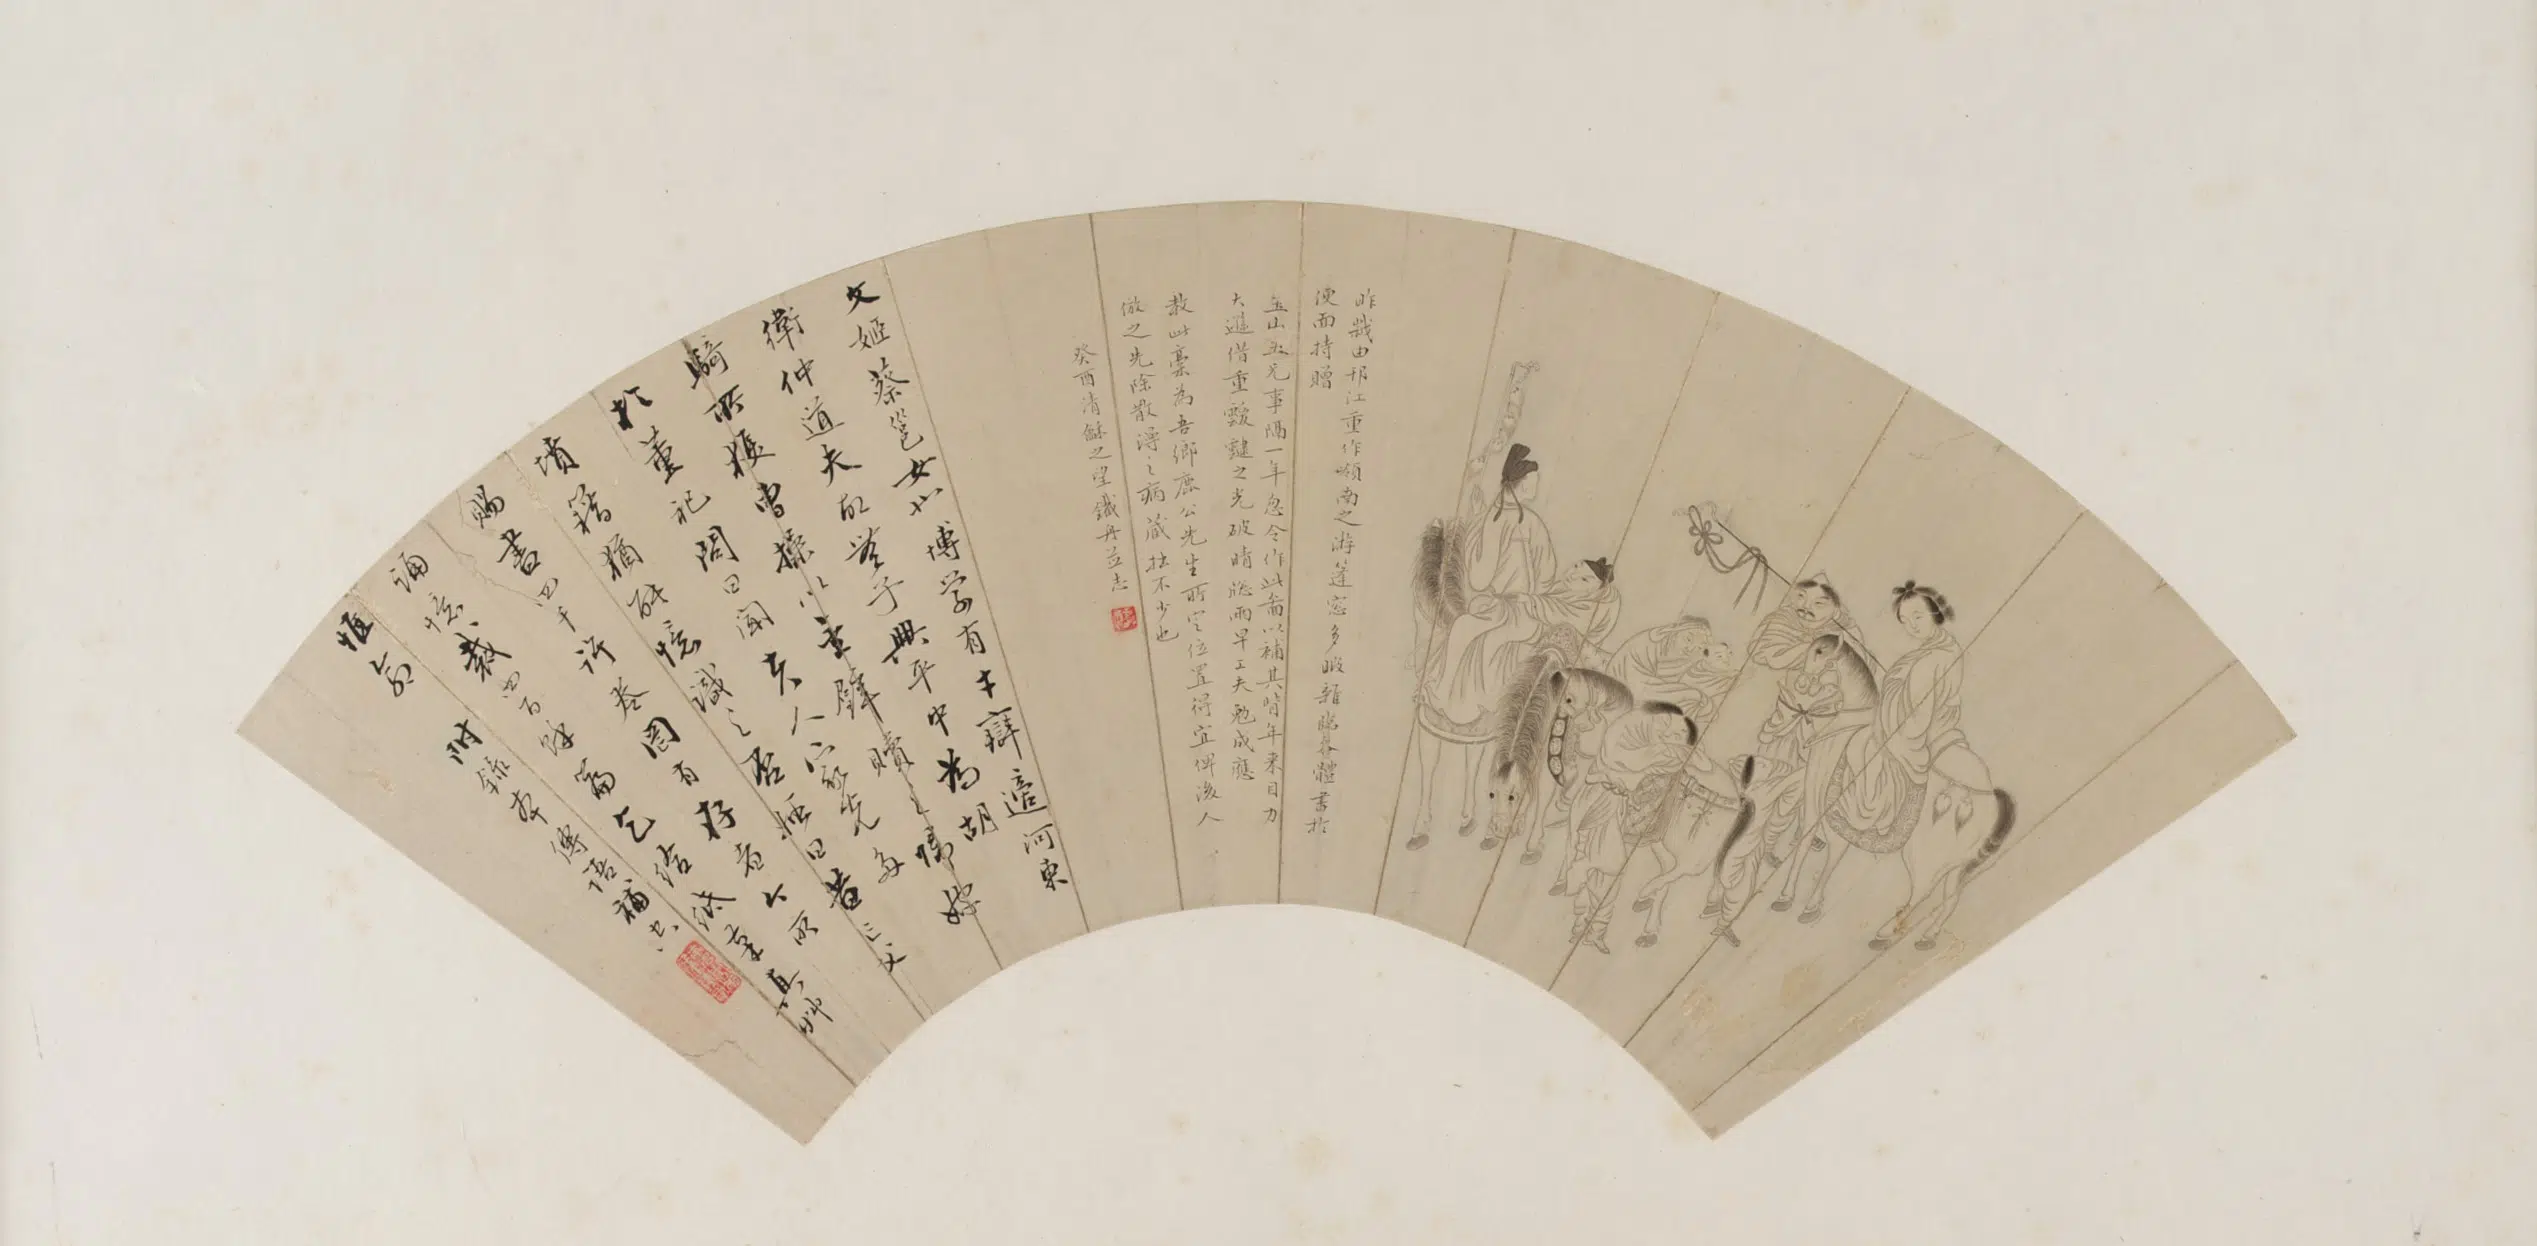 昨歲由邗江重作嶺南之游篷窓多暇雜臨各體書於
便面持贈
玉山五兄事隔一年忽令作此畨以補其背年來目力
大遜借重靉靆之光破晴牕雨早工夫勉成應
教此稾為吾鄉鹿公先生所定位置得宜俾後人
倣之先除散漫之病藏拙不少也
癸酉清龢之望鐵舟並志
文姬蔡邕女也博學有才辯適河東
衛仲道夫亡無子興平中為胡
騎所獲曹操以金璧贖之歸嫁
於董祀問曰聞夫人家先多
墳籍猶能憶識之否姬曰昔亡父
賜書四千許卷罔有存者今所
誦憶裁四百餘篇乞給紙筆真艸
惟命
附錄本傳語補空